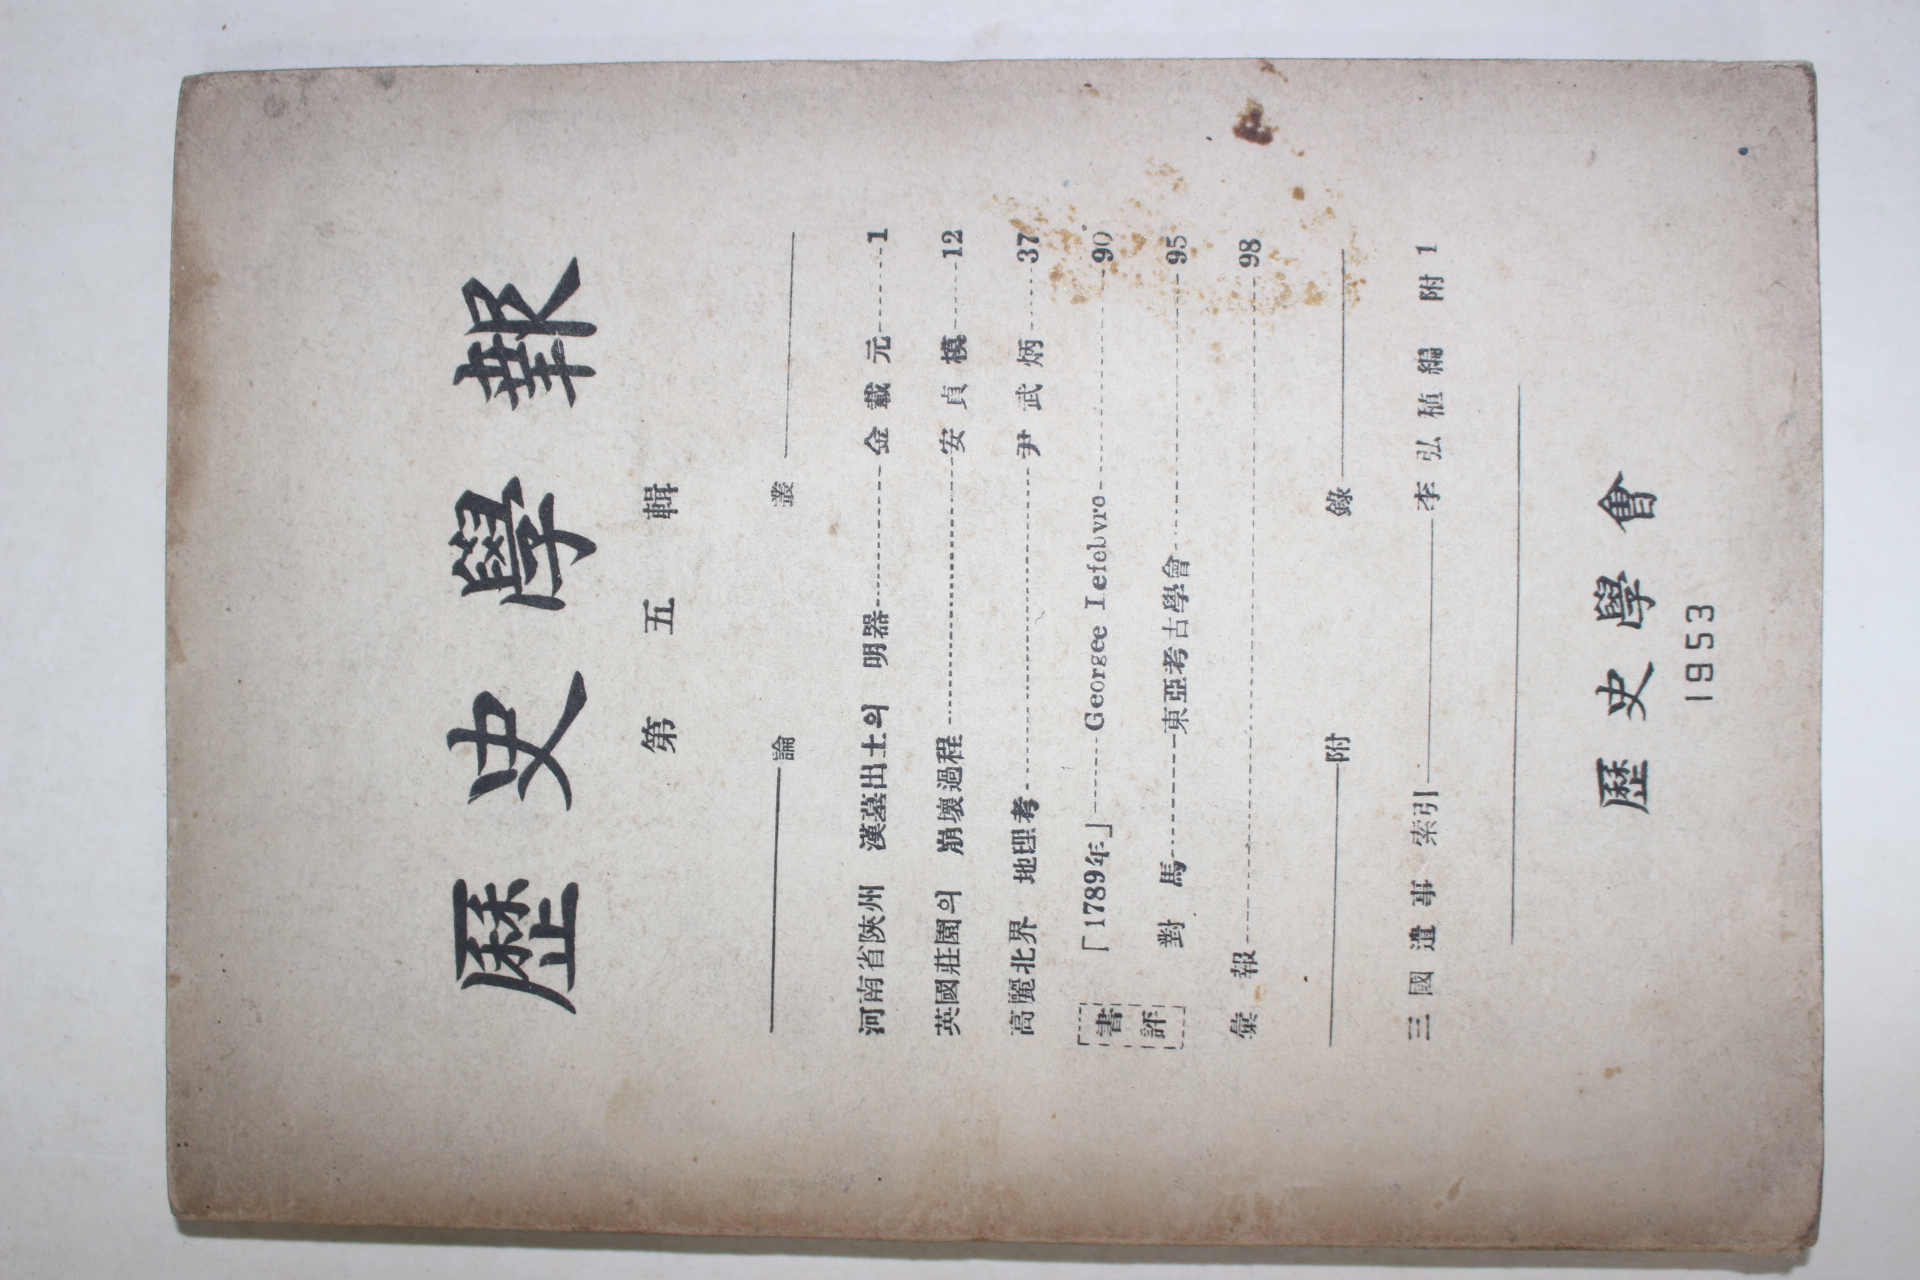 歷史學報
第五輯
論叢
河南省陜州 漢墓出土의 明器 金載元 1
英國莊園의 崩壞過程 安貞模 12
高麗北界 地理考 尹武炳 37
書評
「1789年」 Georgee Iefebvre 90
對馬 東亞考古學會 95
彙報 98
附錄
三國遺事索引 李弘稙編 附1
歷史學會
1953